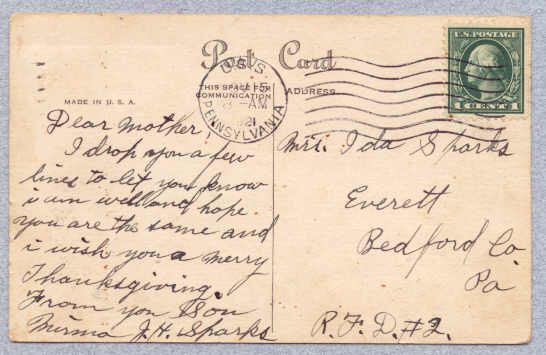 Post Card
THIS SPACE FOR
COMMUNICATION
ADDRESS
MADE IN U. S. A.
U.S.S.
5
AM
21
PENNSYLVANIA
U.S. POSTAGE
1 CENT 1
Dear Mother
I drop you a few
lines to let you know
i am well and hope
you are the same and
i wish you a merry
Thanksgiving.
From you Son
J. H. Sparks
Mrs. Ida Sparks
Everett
Bedford Co.
Pa
R. F. D. #2.